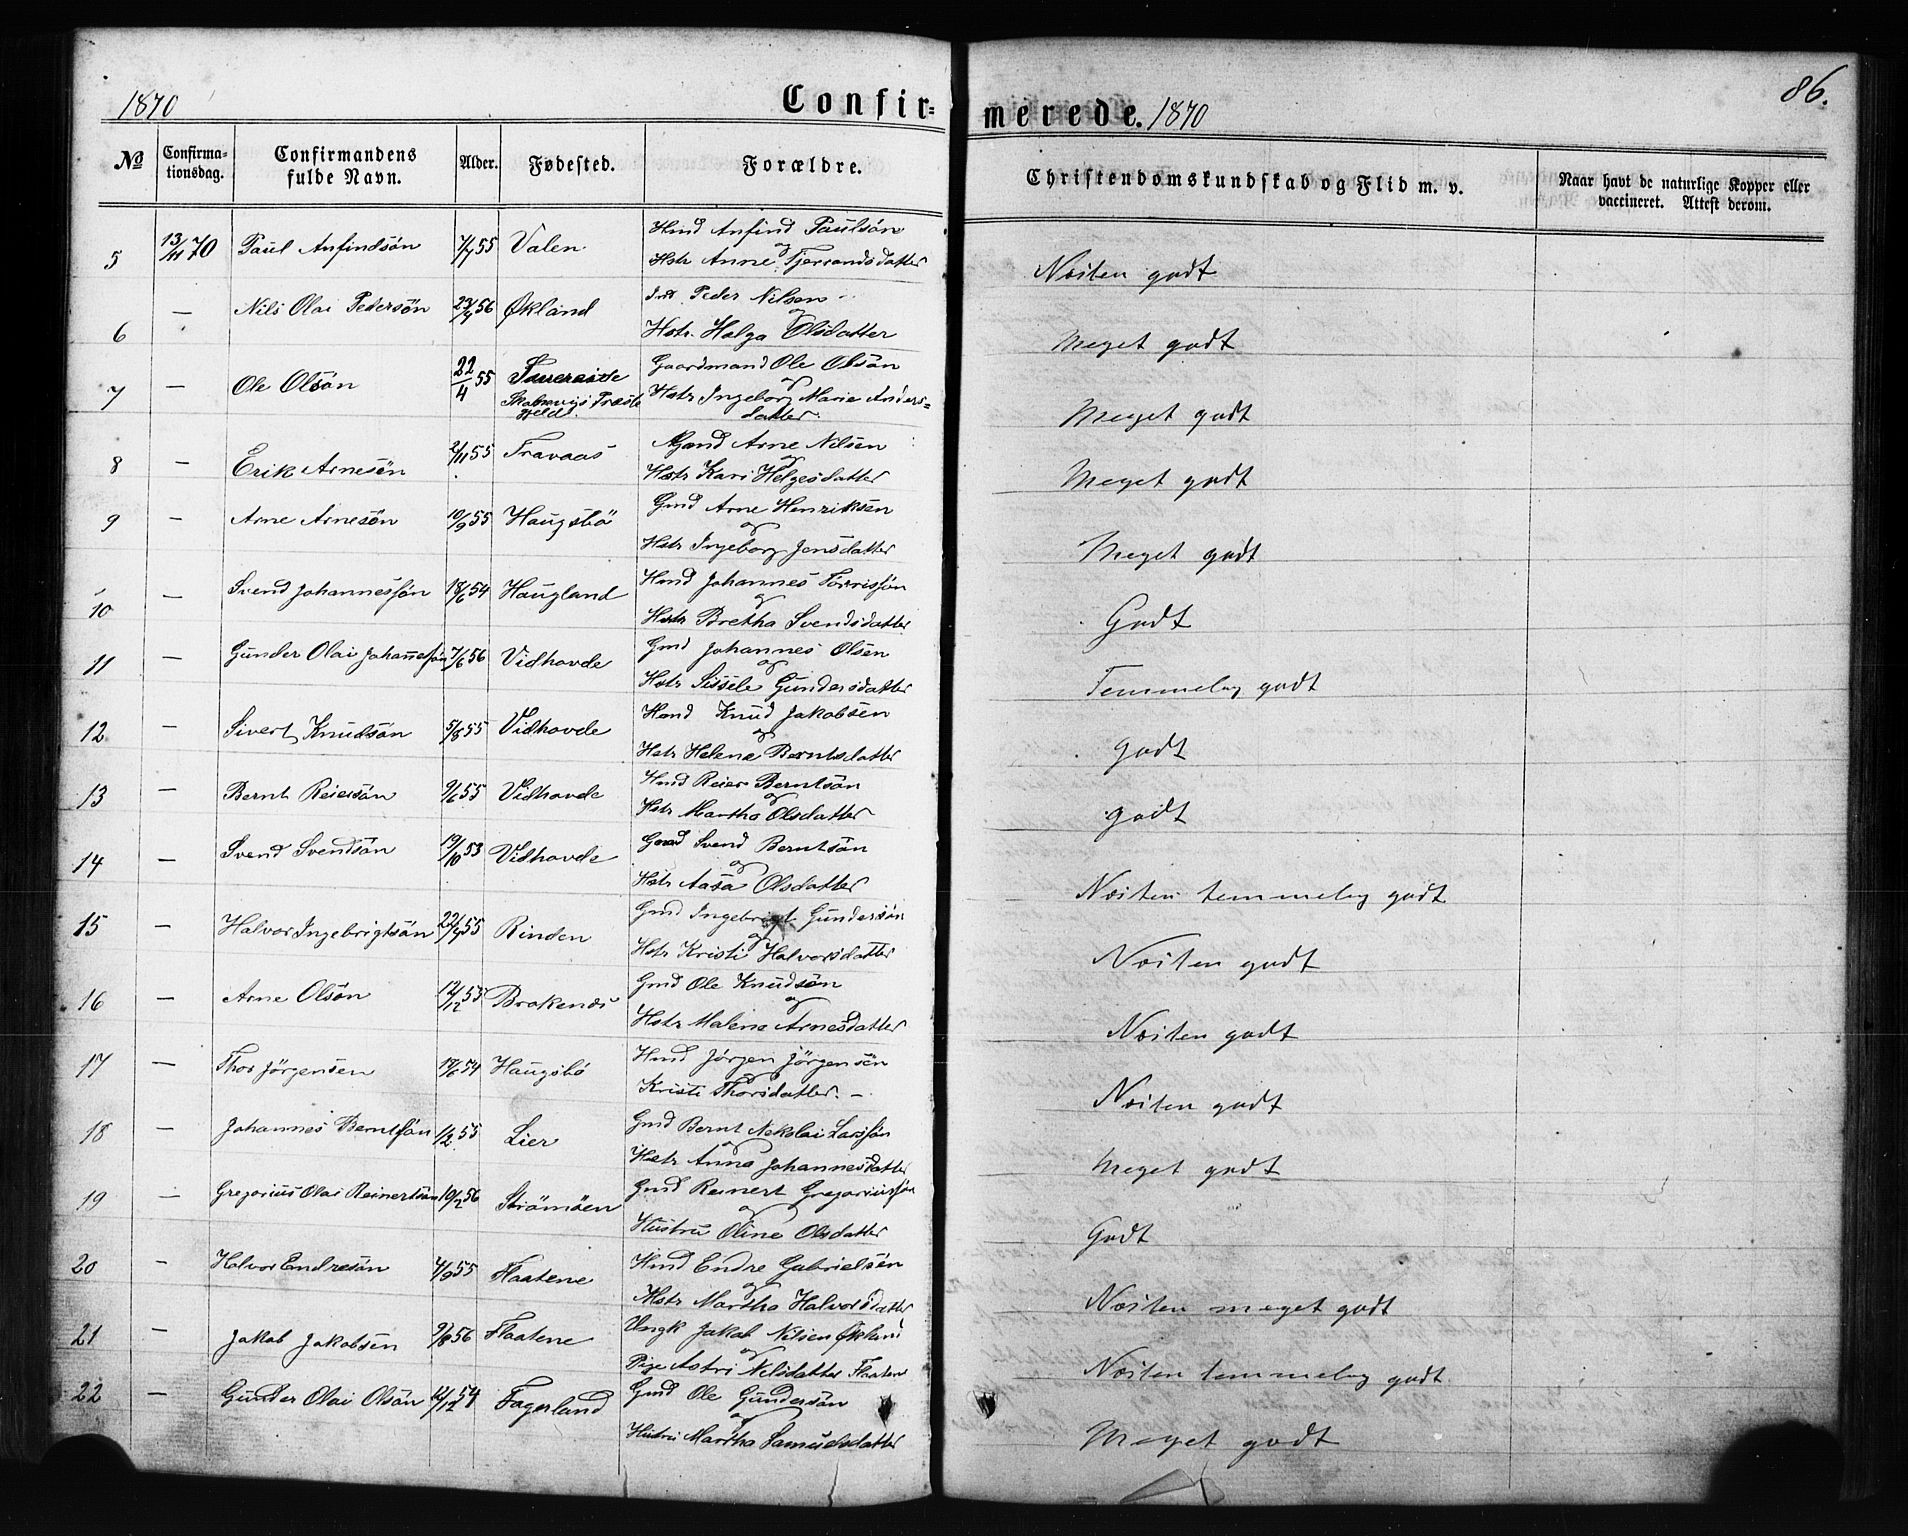 1870 Confir-
merede. 1870 86.
№ Confirma-tionsdag. Confirmandens fulde Navn. Alder. Fødested. Forældre. Christendomskundskab og Flid m. v. Naar havt de naturlige Kopper eller vaccineret. Attest derom.
5 13/11 70 Paul Anfindsön 7/7 55 Valen Hmd Anfind Paulsön
og
Hstr Anne Tjerrandsdatter Næsten godt
6 — Nils Olai Pedersön 23/4 56 Økland Peder Nilsen
og
Hstr. Helga Olsdatter Meget godt
7 — Ole Olsön 22/4 55 Gaardmand Ole Olsön
Skaanevigs Præste
gjeld. og
Hstr Ingeborg Marie Anders=
datter. Meget godt
8 — Erik Arnesön 2/11 55 Travaas Gmd Arne Nilsen
og
Hstr Kari Helgesdatter Meget godt
9 — Arne Arnesön 10/9 55 Haugsbö Gmd Arne Henriksen
og
Hstr Ingeborg Jensdatter Meget godt
10 — Svend Johannessön 18/6 54 Haugland Hmd Johannes Torrissön
og
Hstr Bretha Svendsdatter Godt
11 — Gunder Olai Johanesön 7/6 56 Vidhovde Gmd Johannes Olsen
og
Hstr Sissele Gundersdatter Temmelig godt
12 — Sivert Knudsön 5/8 55 Vidhovde Hmd Knud Jakobsen
og
Hstr Helene Berntsdatter godt
13 — Bernt Reiersön 9/6 55 Vidhovde Hmd Reier Berntsön
og
Hstr Martha Olsdatter godt
14 — Svend Svendsön 19/10 53 Vidhovde Gmd Svend Berntsön
og
Hstr Aasa Olsdatter Næsten temmelig godt
15 — Halvor Ingebrigtsön 22/4 55 Rinden Gmd Ingebrigt Gundersön
og
Hstr Kristi Halvorsdatter Næsten godt
16 — Arne Olsön 12/12 53 Brokenæs Gmd Ole Knudsön
og
Hstr Malene Arnesdatter Næsten godt
17 — Thor Jörgensen 18/6 54 Haugsbö Hmd Jörgen Jörgensön
Kristi Thorsdatter. — Næsten godt
18 — Johannes Berntsön 1/2 55 Lier Gmd Bernt Nekolai Larssön
og
Hstr Anna Johannesdatter Meget godt
19 — Gregorius Olai Reinertsön 10/2 56 Strömöen Gmd Reinert Gregoriussön
og
Hustru Oline Olsdatter Godt
20 — Halvor Endresön 4/9 55 Flaatene Hmd Endre Gabrielsön
og
Hstr Martha Halvorsdatter Næsten meget godt
21 — Jakob Jakobsen 9/8 56 Flaatene Ungk Jakob Nilsen Økland
og
Pige Astri Nilsdatter Flaatene Næsten temmelig godt
22 — Gunder Olai Olsön 12/12 54 Fagerland Gmd Ole Gundersön
og
Hustru Martha Samuelsdatter Meget godt